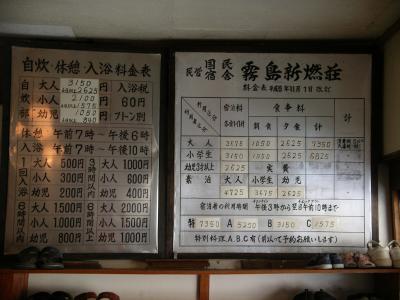 自炊・休憩・入浴料金表
自 大人 3150 円 入浴税
炊 小人 2100 円 60円
部 幼児 1050 円 プトーン別
840
休憩 午前7時〜午後6時
入浴 午前7時〜午後10時
1回入浴 大人 500円 3時間以内 大人 1000円
小人 300円 小人 600円
幼児 200円 幼児 400円
6時間以内 大人 1500円 6時間以上 大人 2000円
小人 1000円 小人 1500円
幼児 800円 幼児 1000円
民営 国民宿舎 霧島新燃荘
料金表
宿泊料 食事料 計
朝食 夕食 計
大人 3675 1050 2625 7350
小学生 3150 1050 2625 6825
幼児3才以上 2625 実費
素泊 大人 小学生 幼児
4725 3675 2625
宿泊者の利用時間 午後3時から翌午前10時まで
特 7350 A 5250 B 3150 C 1575
特別料理A.B.C有(前以って予約お願いします)